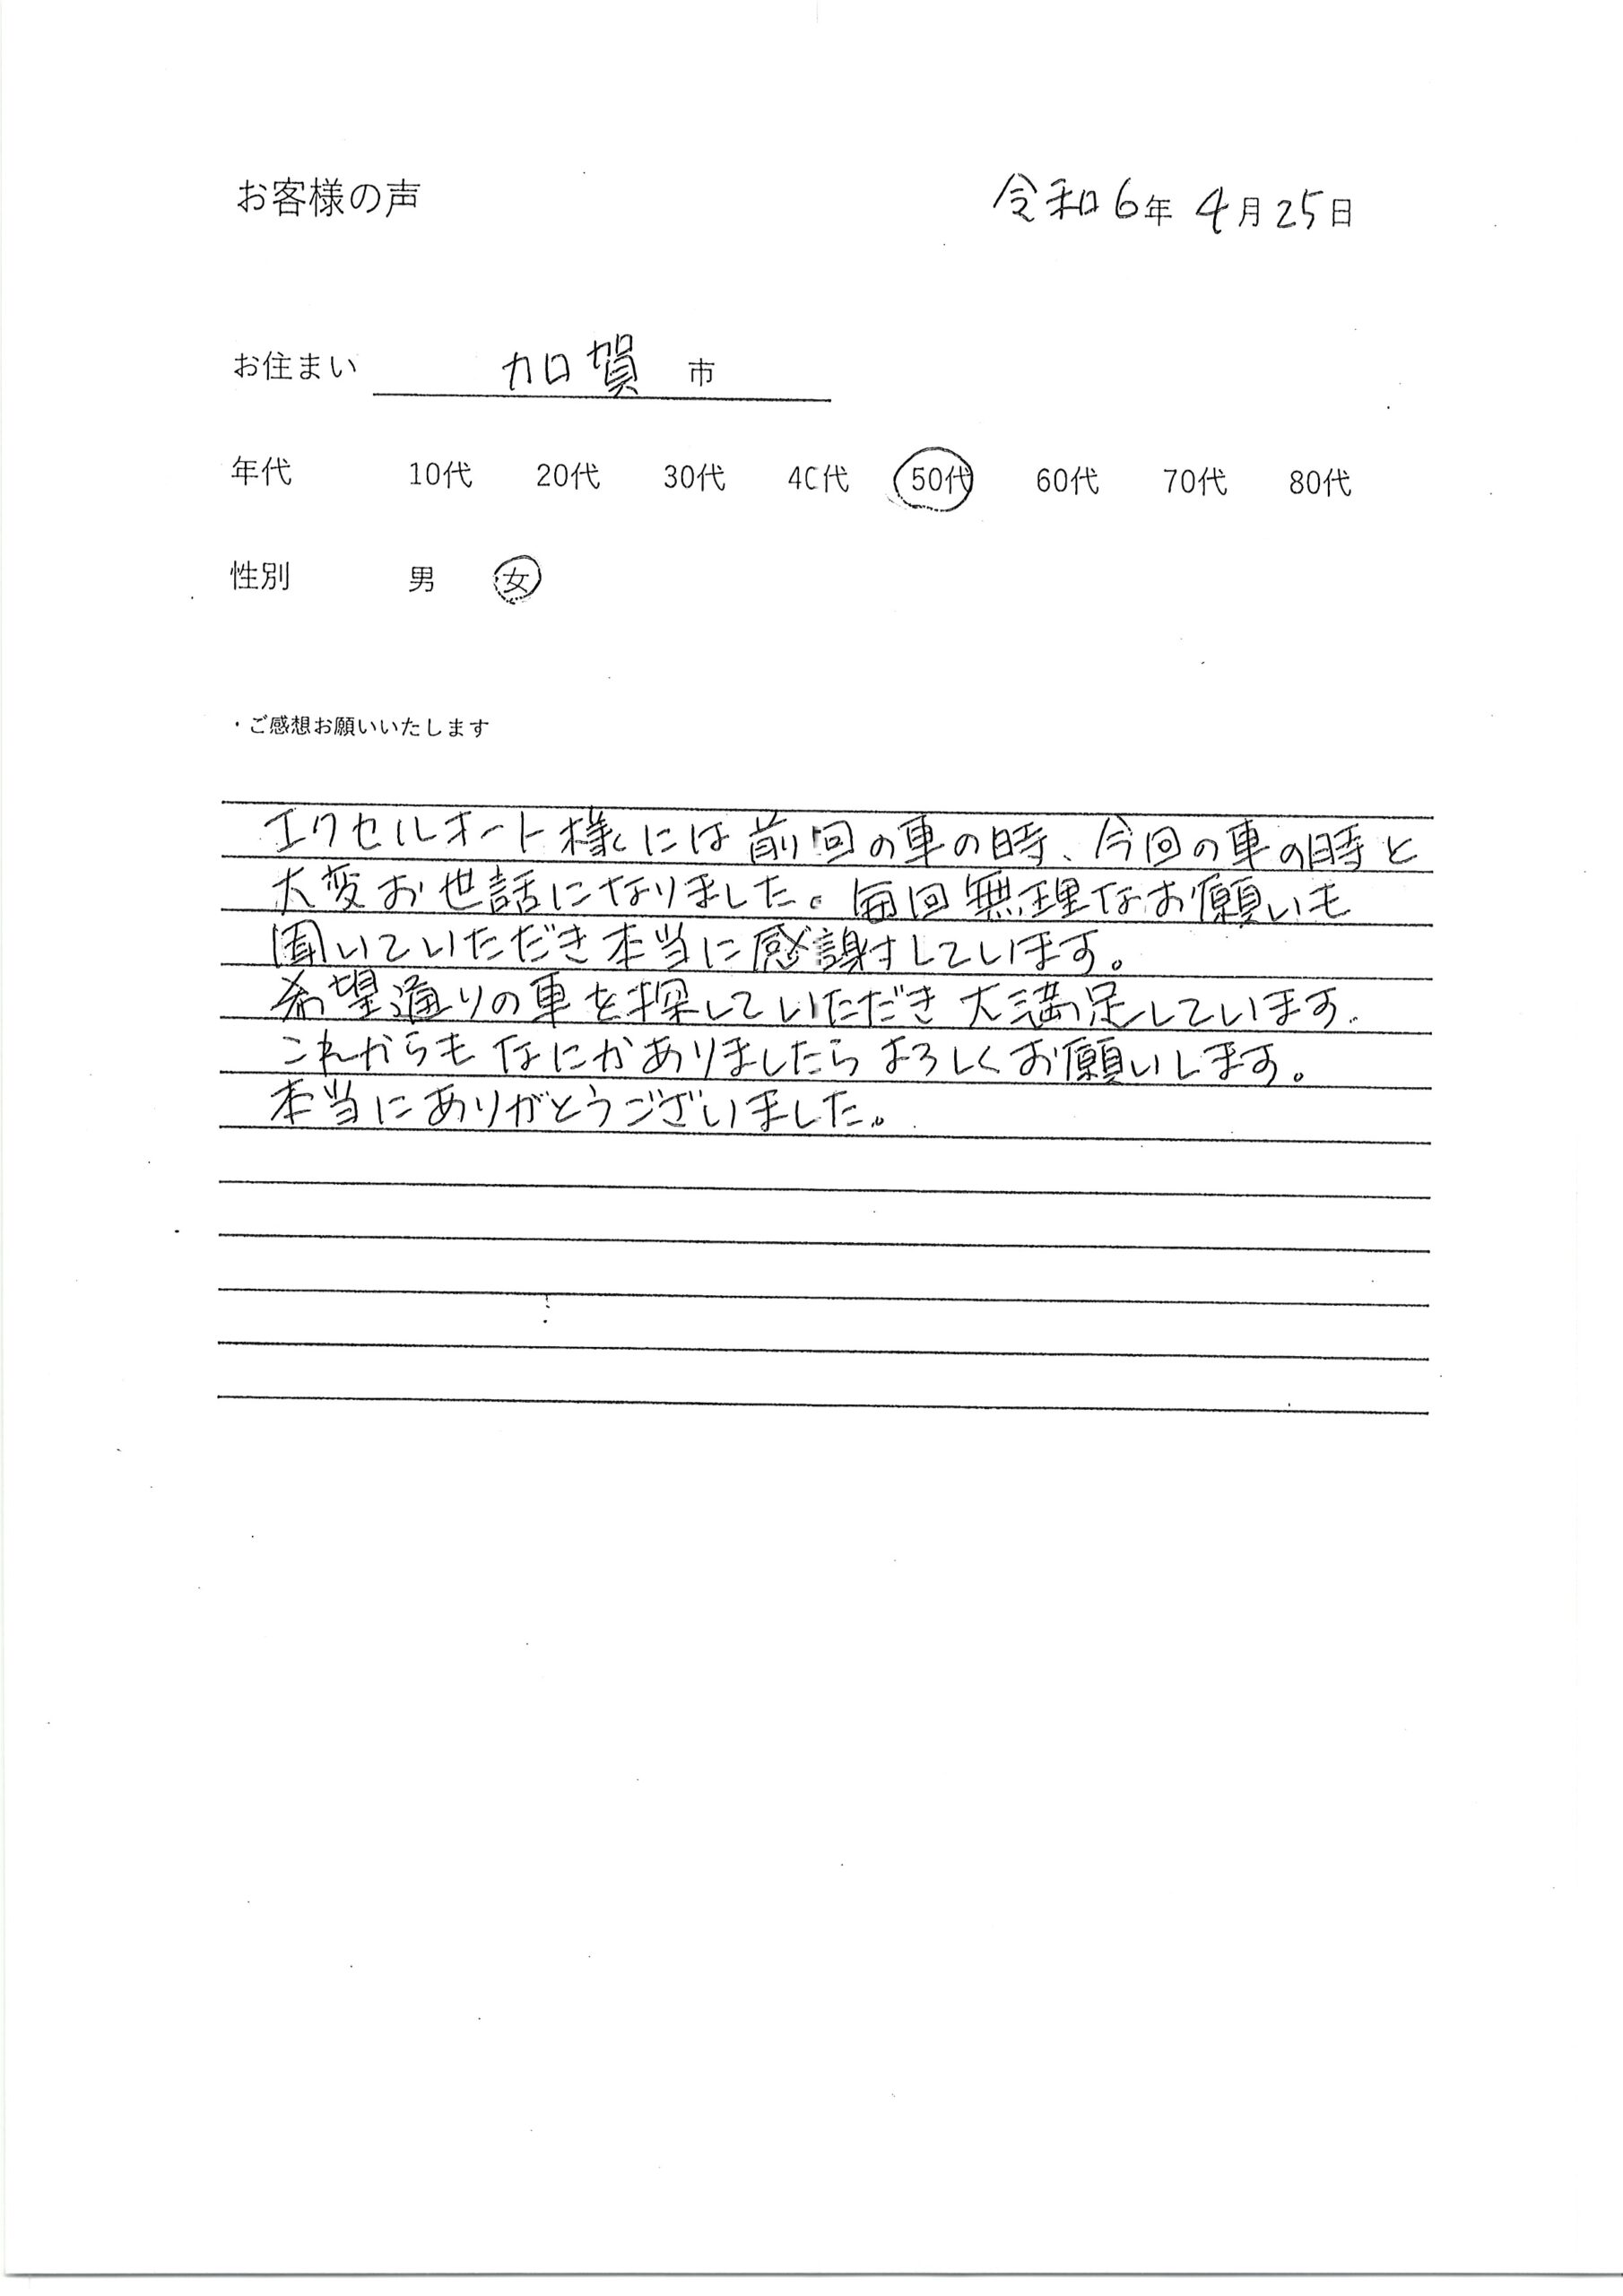 お客様の声
令和6年 4月25日
お住まい 加賀 市
年代 10代 20代 30代 40代 50代 60代 70代 80代
性別 男 女
・ご感想お願いいたします
エクセルオート様には前回の車の時、今回の車の時と
大変お世話になりました。毎回無理なお願いも
聞いていただき本当に感謝しています。
希望通りの車を探していただき大満足しています.
これからもなにかありましたらよろしくお願いします。
本当にありがとうございました。